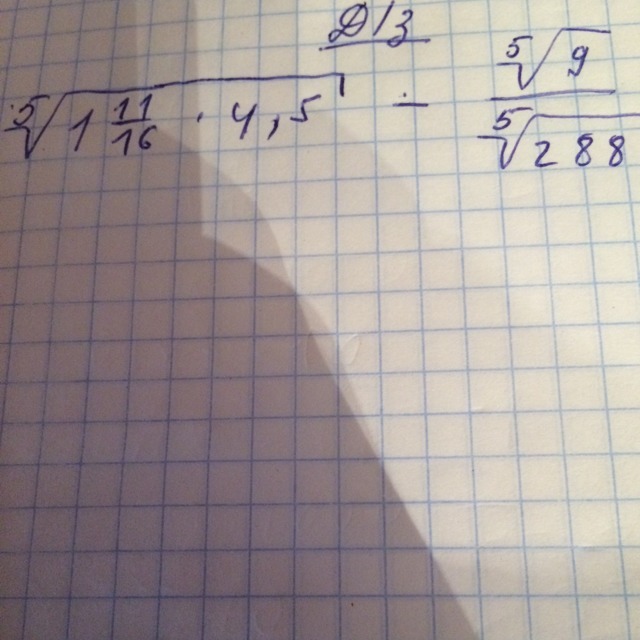 Д/З
⁵√(1 11/16 · 4,5) − ⁵√9 / ⁵√288